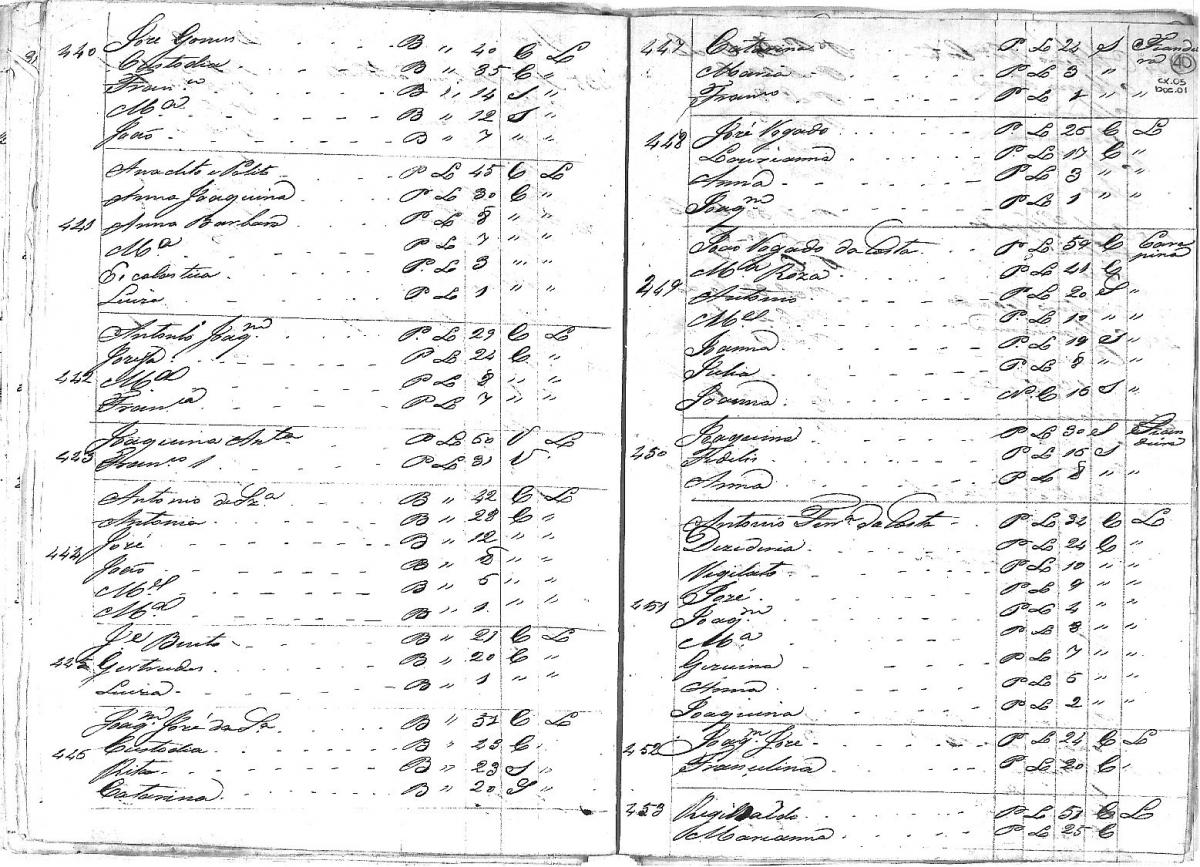 440 José Gomes B " 40 C L
Custodia B " 35 C "
Fran.ca B " 14 S "
M.a B " 12 S "
João B " 7 " "
P L 45 C L
Anna Joaquina P L 30 C "
441 Anna Barbara P L 8 " "
M.a P L 7 " "
P L 3 " "
Luiza P L 1 " "
Antonio Joaq.m P L 29 C L
P L 24 C "
442 M.el P L 8 " "
Fran.ca P L 7 " "
Joaquina Ant.a P L 50 V L
443 Fran.co P L 31 V
Antonio de Sz.a B " 42 C L
Antonia B " 28 C "
444 José B " 12 " "
João B " 8 " "
M.el B " 5 " "
M.a B " 1 " "
J.e Bento B " 21 C L
445 Gertrudes B " 20 C "
Luiza B " 1 " "
Joaq.m José da S.a B " 51 C L
446 Custodia B " 23 C "
Rita B " 23 S "
Catarina B " 20 S "
447 Catarina P L 24 S Fiandeira
Maria P L 3 " "
Fran.co P L 1 " "
40
CX.05
Doc.01
448 José Vogado P L 25 C L
Lourianna P L 17 C "
Anna P L 3 " "
Joaq.m P L 1 " "
João Vogado da Costa P L 59 C Carapina
M.a Roza P L 41 C
449 Antonio P L 20 S "
M.el P L 19 " "
Joanna P L 19 S "
Julia P L 8 " "
Joanna N C 16 S "
Joaquina P L 30 S Fiandeira
450 Fidelis P L 15 S "
Anna P L 8 " "
Antonio Ferr.a da Costa P L 32 C L
Dezideria P L 24 C "
Vigilato P L 10 " "
451 José P L 9 " "
Joaq.m P L 4 " "
M.a P L 8 " "
Geruina P L 7 " "
Anna P L 5 " "
Joaquina P L 2 " "
452 Joaq.m José P L 24 C L
Franculina P L 20 C "
453 Regi P L 51 C L
Marianna P L 25 C